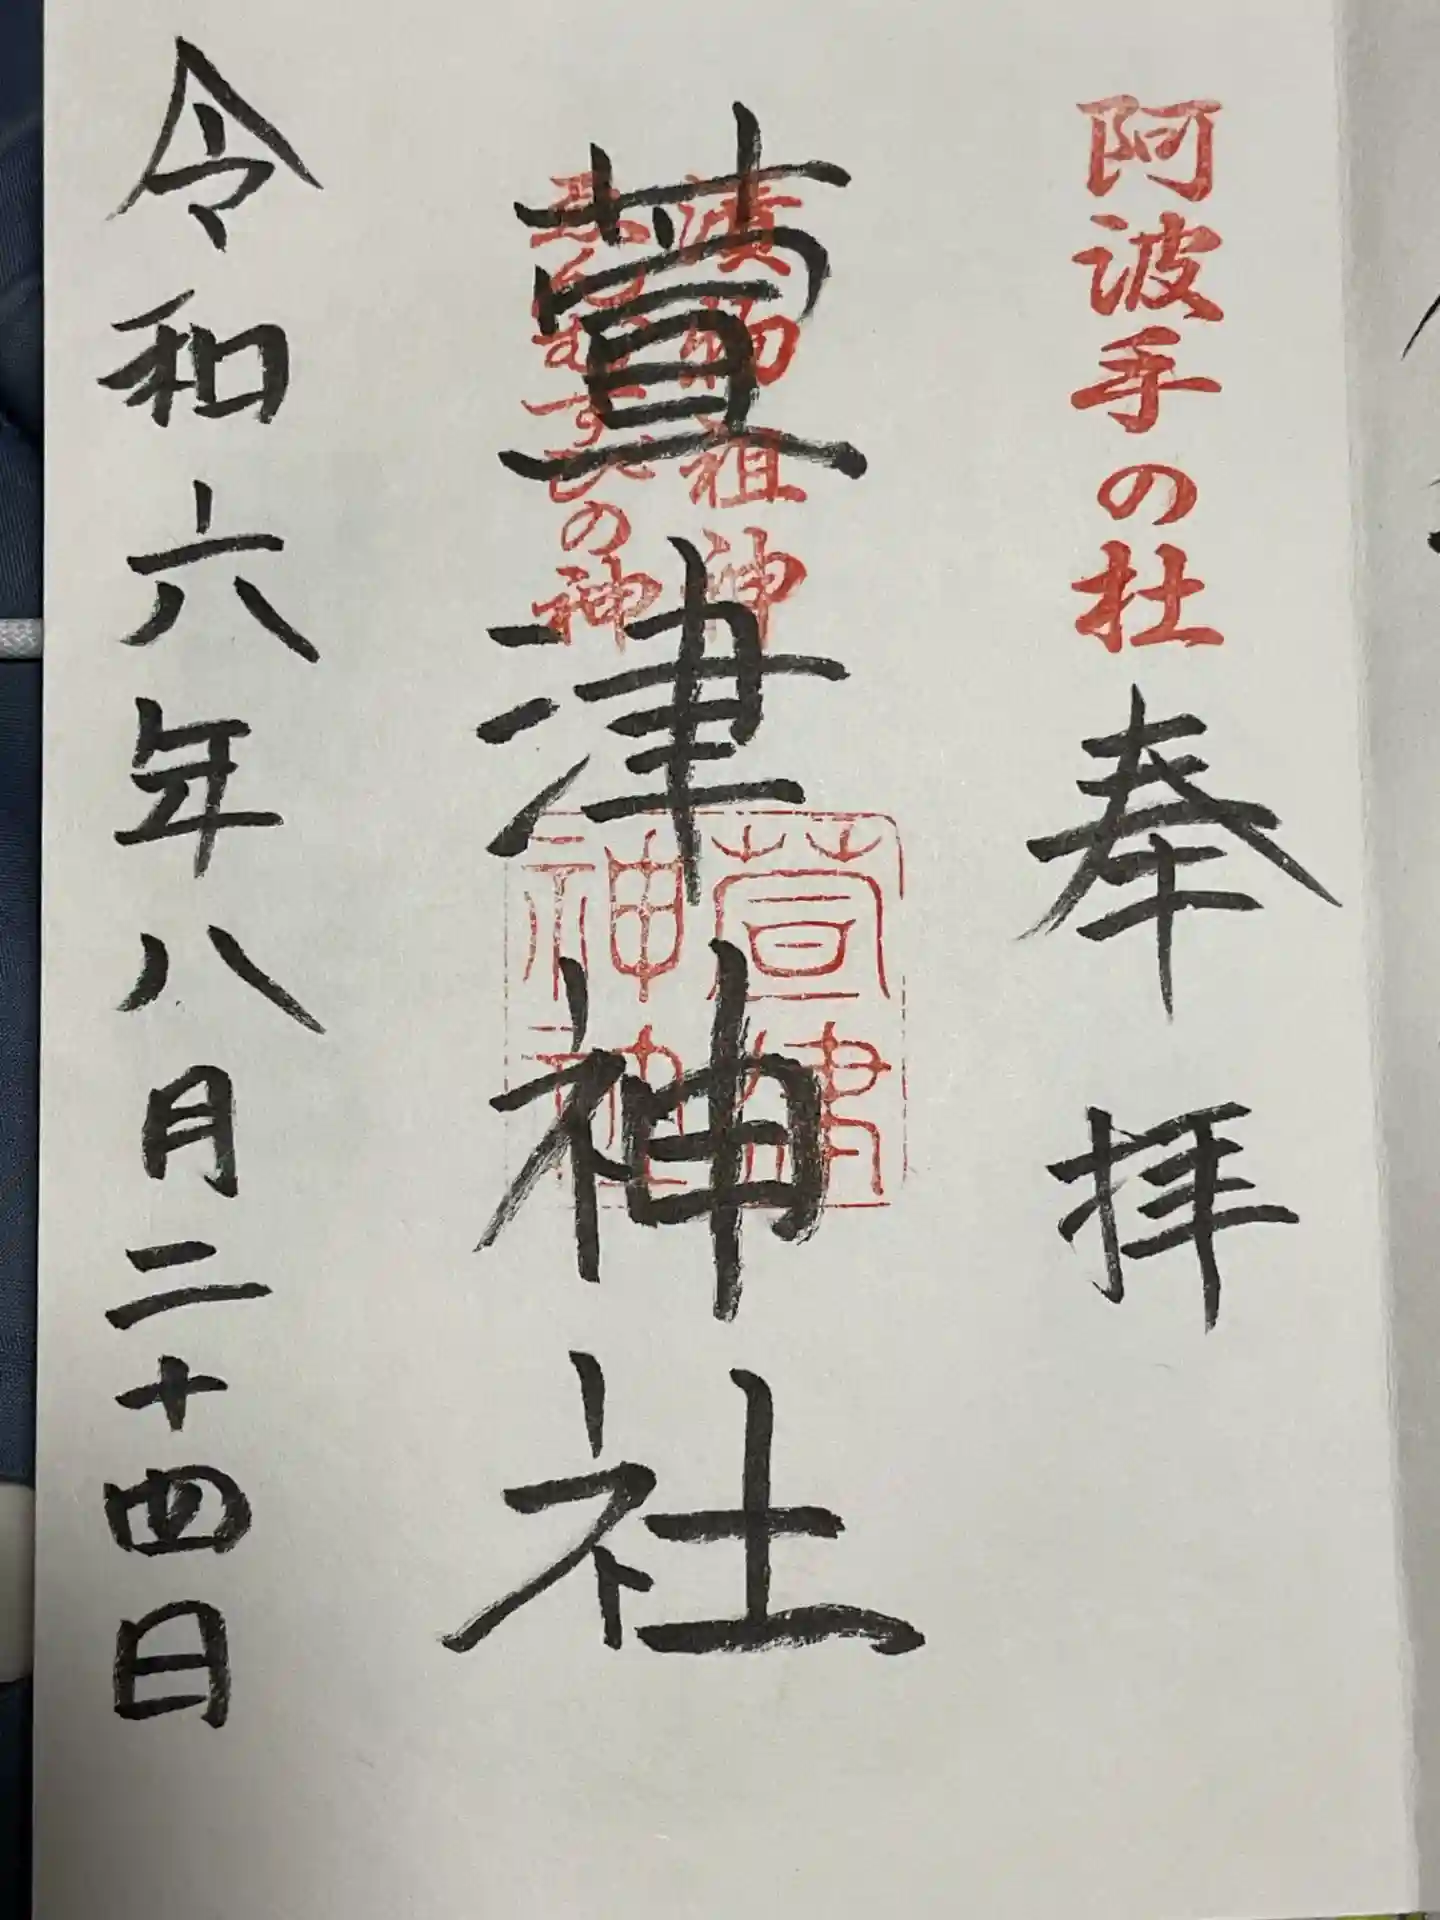 阿波手の杜
奉拝
漬物祖神
縁むすびの神
萱津神社
萱津
神社
令和六年八月二十四日